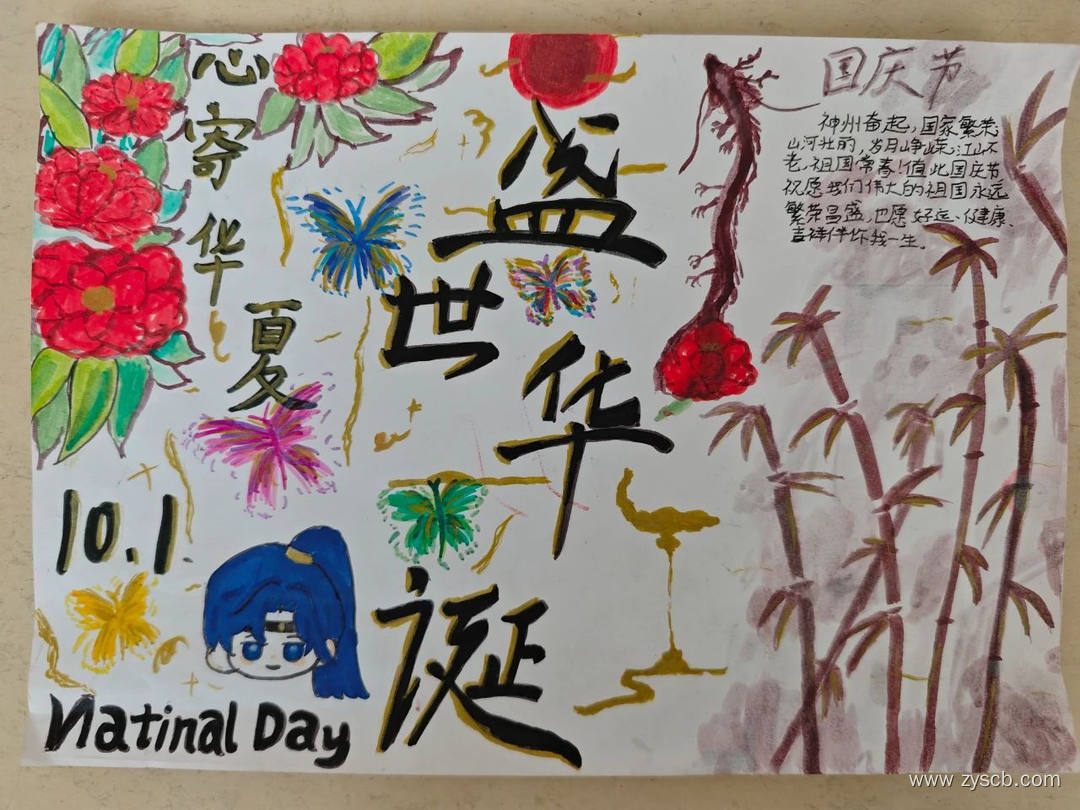 心寄华夏
盛世华诞
国庆节
神州奋起,国家繁荣
山河壮的,岁月峥嵘;江山不
老,祖国常春!值此国庆节
祝愿我们伟大的祖国永远
繁荣昌盛,也愿好运、健康、
吉祥伴你我一生。
10.1
Natinal Day
www.zyscb.com